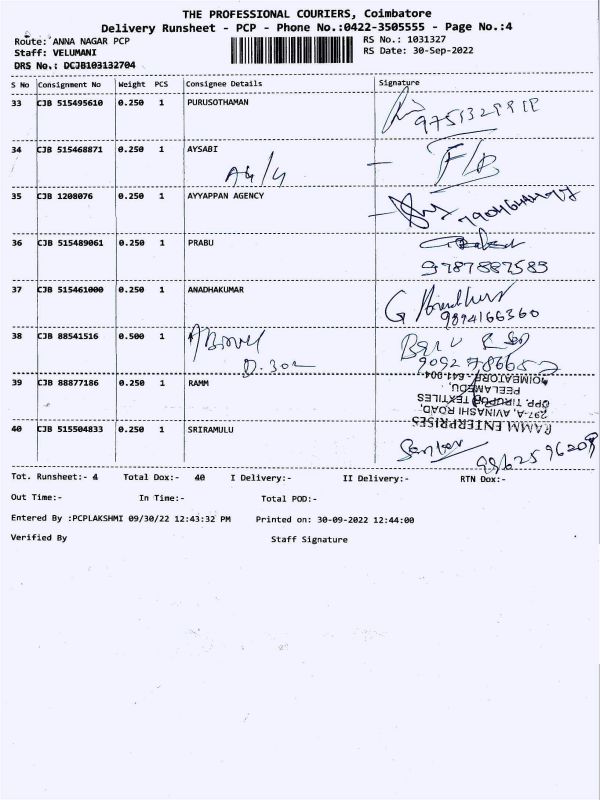 THE PROFESSIONAL COURIERS, Coimbatore
Delivery Runsheet - PCP - Phone No.:0422-3505555 - Page No.:4
Route: ANNA NAGAR PCP
RS No.: 1031327
Staff: VELUMANI
RS Date: 30-Sep-2022
DRS No.: DCJB103132704
S No Consignment No Weight PCS Consignee Details Signature
33 CJB 515495610 0.250 1 PURUSOTHAMAN
34 CJB 515468871 0.250 1 AYSABI
35 CJB 1208076 0.250 1 AYYAPPAN AGENCY
36 CJB 515489061 0.250 1 PRABU
9787887583
37 CJB 515461000 0.250 1 ANADHAKUMAR
9894166360
38 CJB 88541516 0.500 1
39 CJB 88877186 0.250 1 RAMM
RAMM ENTERPRISES
297-A, AVINASHI ROAD,
OPP. TIRUPUR TEXTILES
PEELAMEDU,
COIMBATORE - 641 004
40 CJB 515504833 0.250 1 SRIRAMULU
Tot. Runsheet:- 4 Total Dox:- 40 I Delivery:- II Delivery:- RTN Dox:-
Out Time:- In Time:- Total POD:-
Entered By :PCPLAKSHMI 09/30/22 12:43:32 PM Printed on: 30-09-2022 12:44:00
Verified By Staff Signature